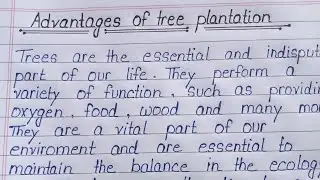 Advantages of tree plantation
Trees are the essential and indisput
part of our life. They perform a
variety of function, such as providin
oxygen, food, wood and many mo
They are a vital part of our
enviroment and are essential to
maintain the balance in the ecolog